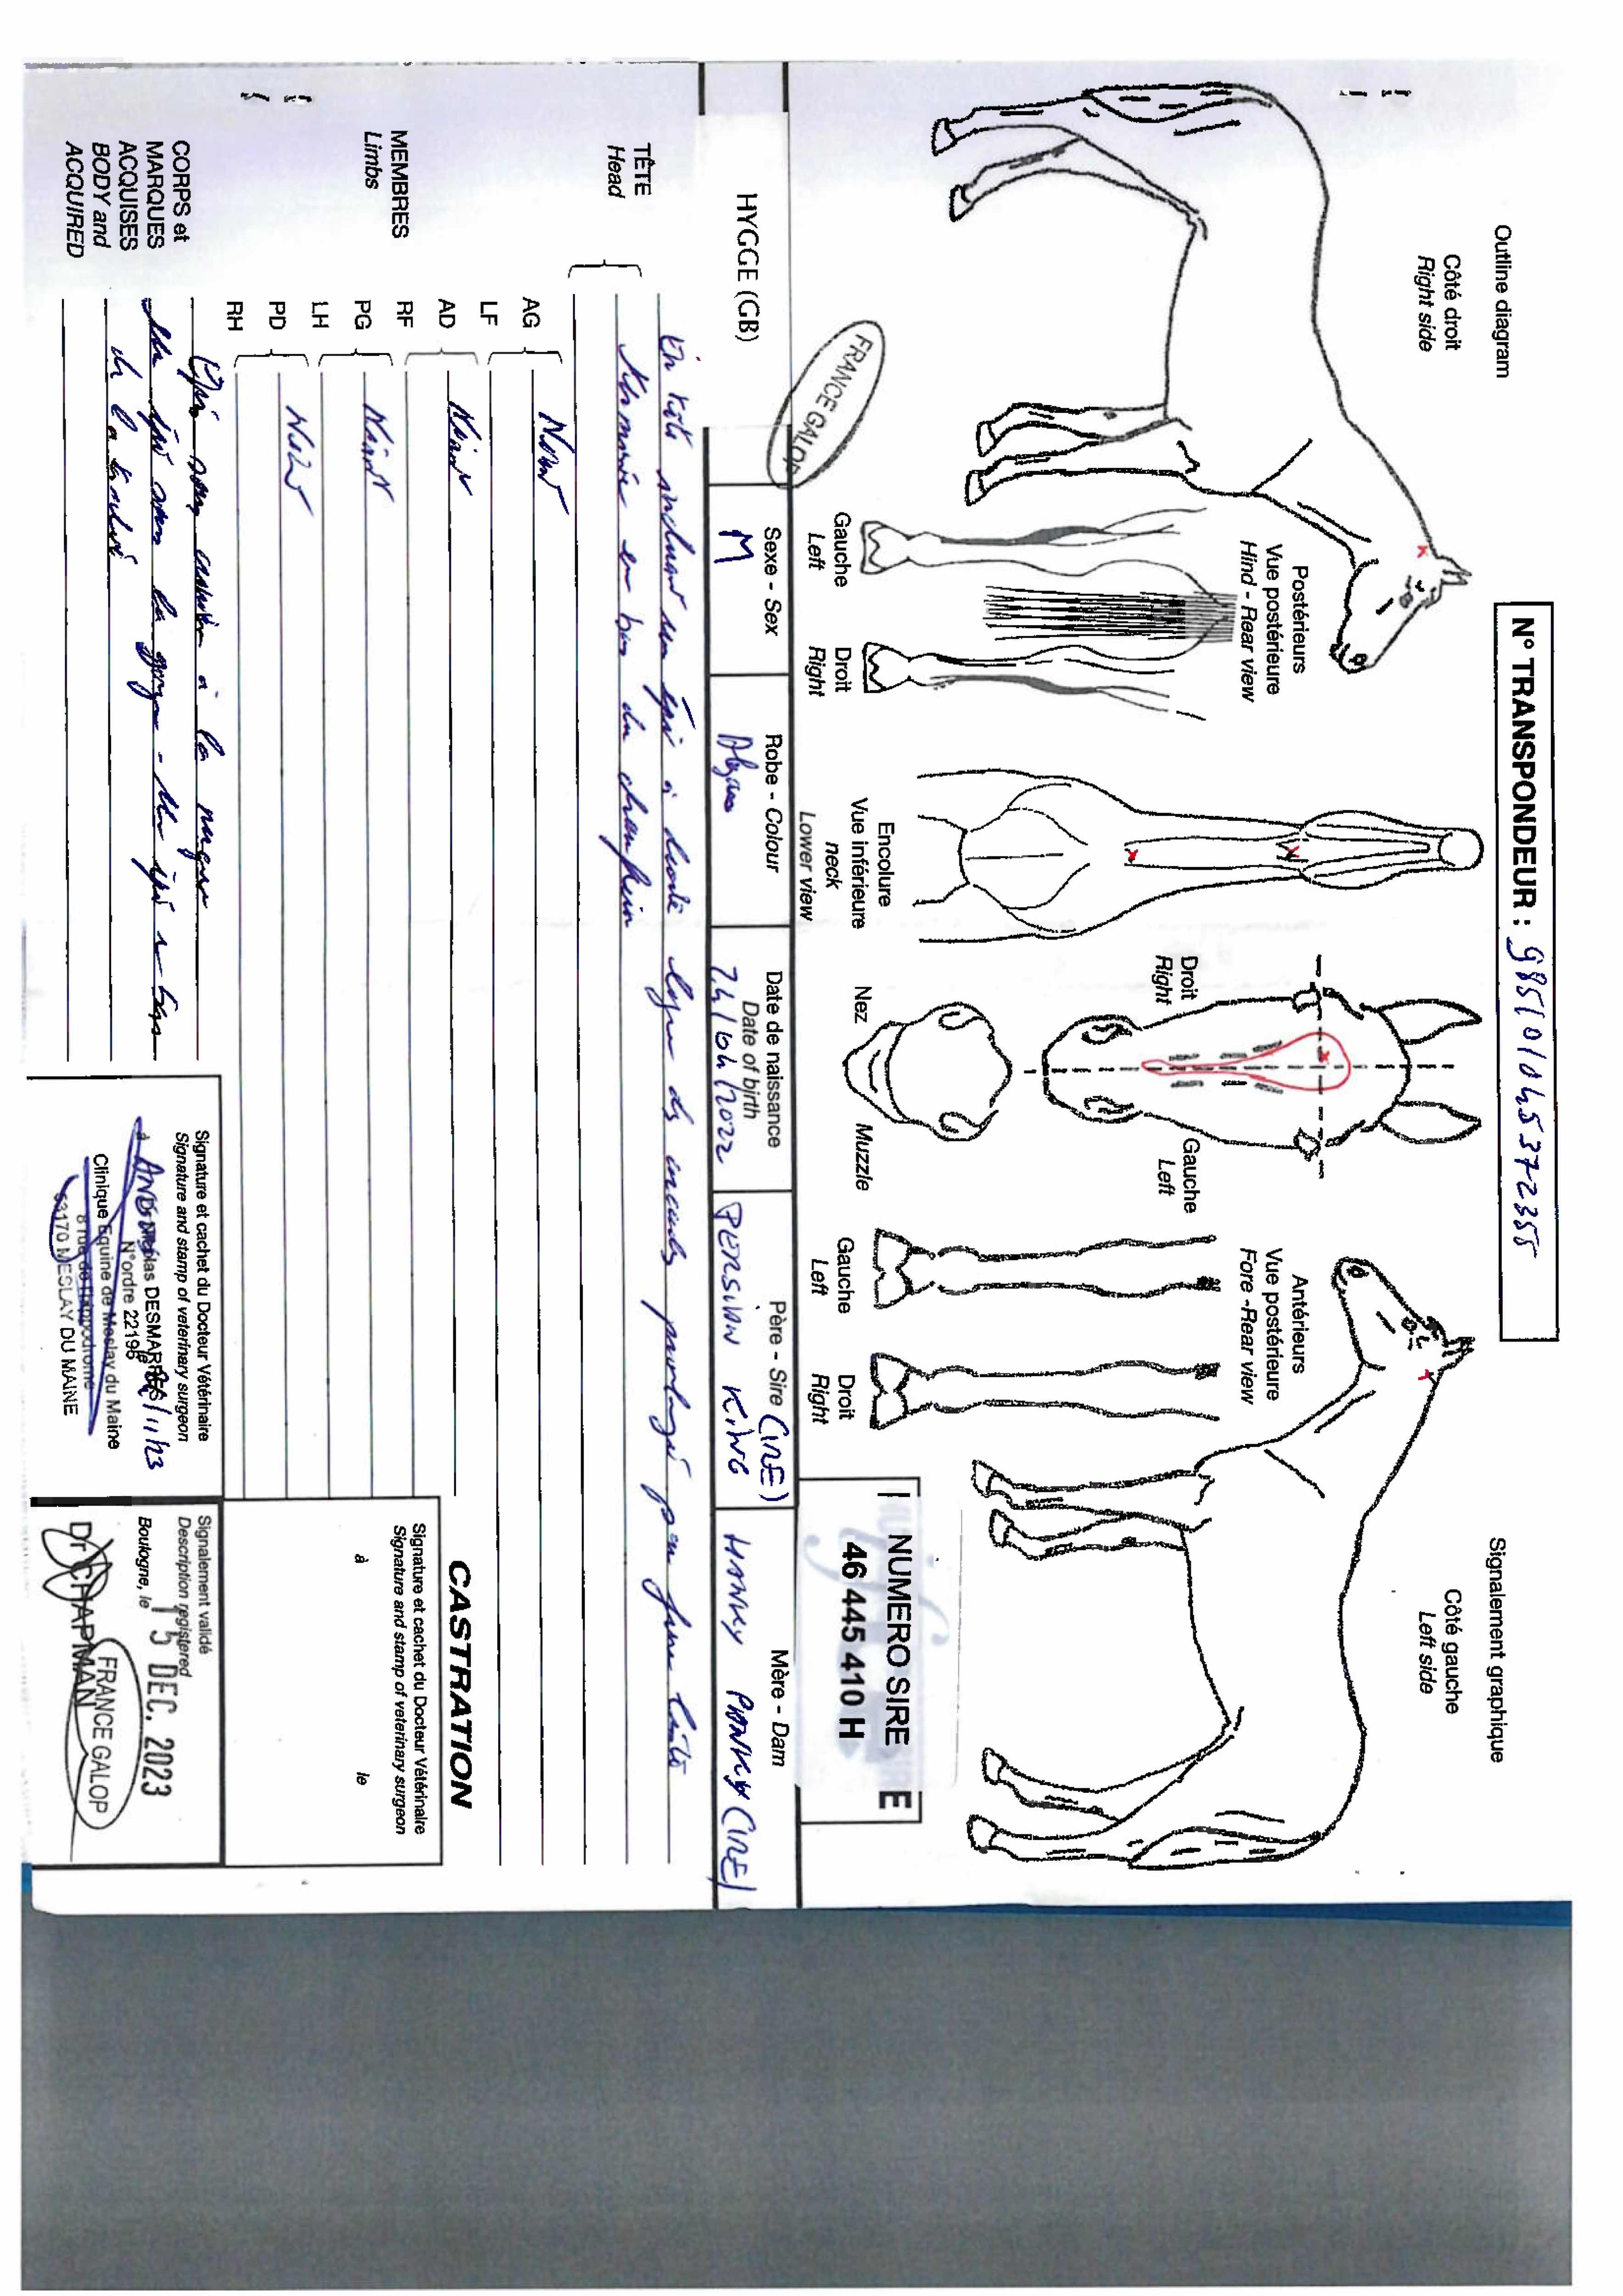 Outline diagram
Côté droit
Right side
N° TRANSPONDEUR : 985101045372355
Signalement graphique
Côté gauche
Left side
Postérieurs
Vue postérieure
Hind - Rear view
Gauche
Left
Droit
Right
Encolure
Vue inférieure
neck
Lower view
Droit
Right
Gauche
Left
Nez
Muzzle
Antérieurs
Vue postérieure
Fore -Rear view
Gauche
Left
Droit
Right
NUMERO SIRE
46 445 410 H
FRANCE GALOP
HYGGE (GB)
Sexe - Sex
M
Robe - Colour
Alezan
Date de naissance
Date of birth
24/04/2022
Père - Sire
PERSIAN KING (IRE)
Mère - Dam
HANKY PANKY (IRE)
TÊTE
Head
En tête incluant un épi à droite ligne des yeux prolongé par fine liste
terminée en bas du chanfrein
MEMBRES
Limbs
AG
LF
Néant
AD
RF
Néant
PG
LH
Néant
PD
RH
Néant
CORPS et
MARQUES
ACQUISES
BODY and
ACQUIRED
Epi à la nuque
Un épi sous la gorge - Un épi
de la trachée
CASTRATION
Signature et cachet du Docteur Vétérinaire
Signature and stamp of veterinary surgeon
à
le
Signature et cachet du Docteur Vétérinaire
Signature and stamp of veterinary surgeon
DESMARRES
N°ordre 22196
Clinique Equine de Meslay du Maine
8 rue de l'hippodrome
53170 MESLAY DU MAINE
Signalement validé
Description registered
Boulogne, le
15 DEC. 2023
Dr CHAPMAN
FRANCE GALOP